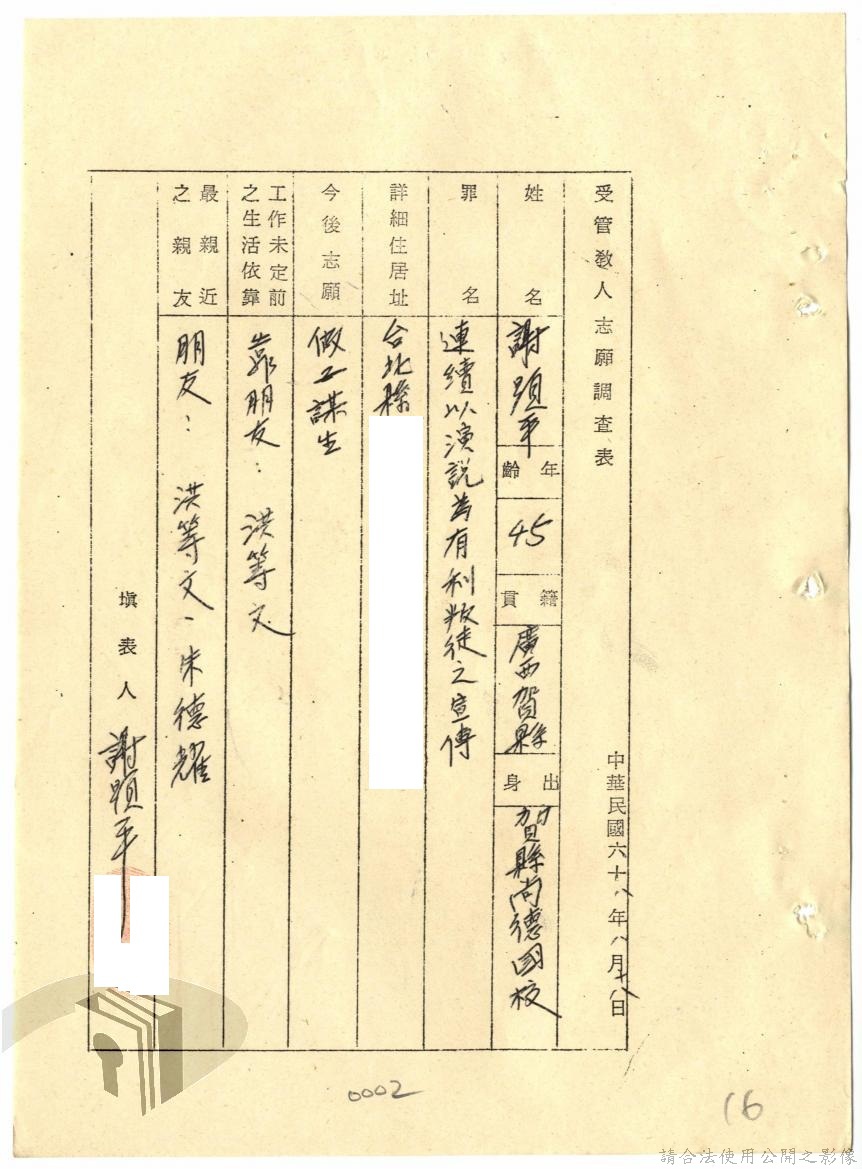 受管教人志願調查表
中華民國六十八年八月十八日
姓名
謝顗平
年齡
45
籍貫
廣西賀縣
出身
賀縣尚德國校
罪名
連續以演說為有利叛徒之宣傳
詳細住居址
台北縣
今後志願
做工謀生
工作未定前
之生活依靠
靠朋友：洪等文
最親近
之親友
朋友：洪等文、朱德耀
填表人 謝顗平
0002
16
請合法使用公開之影像